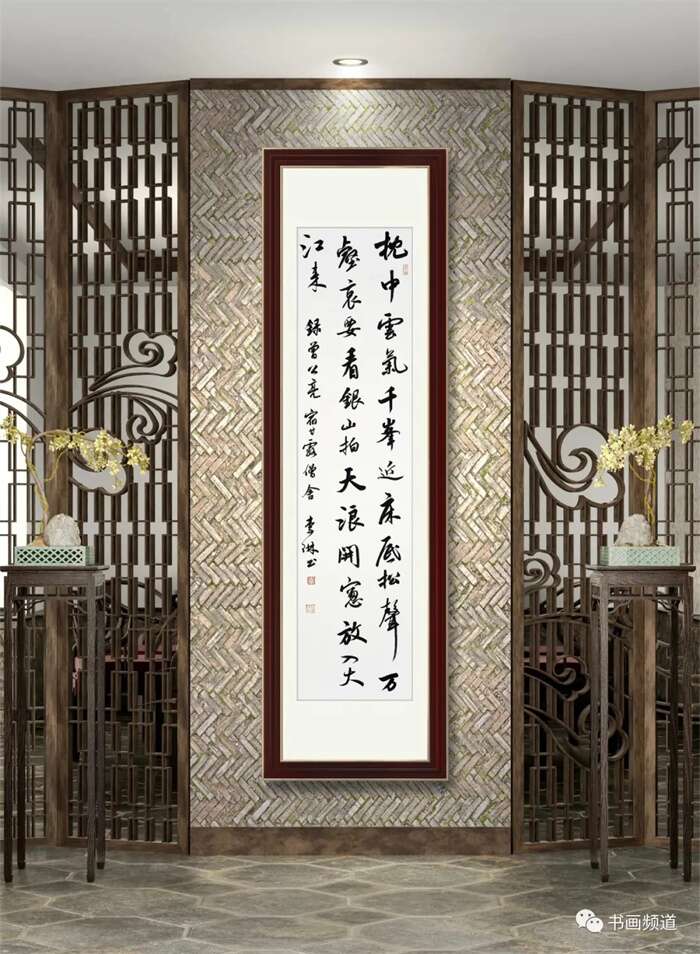 枕中雲氣千峯近床底松聲万
壑哀要看銀山拍天浪開窓放入大
江来 録曾公亮宿甘露僧舍 李琳书
书画频道